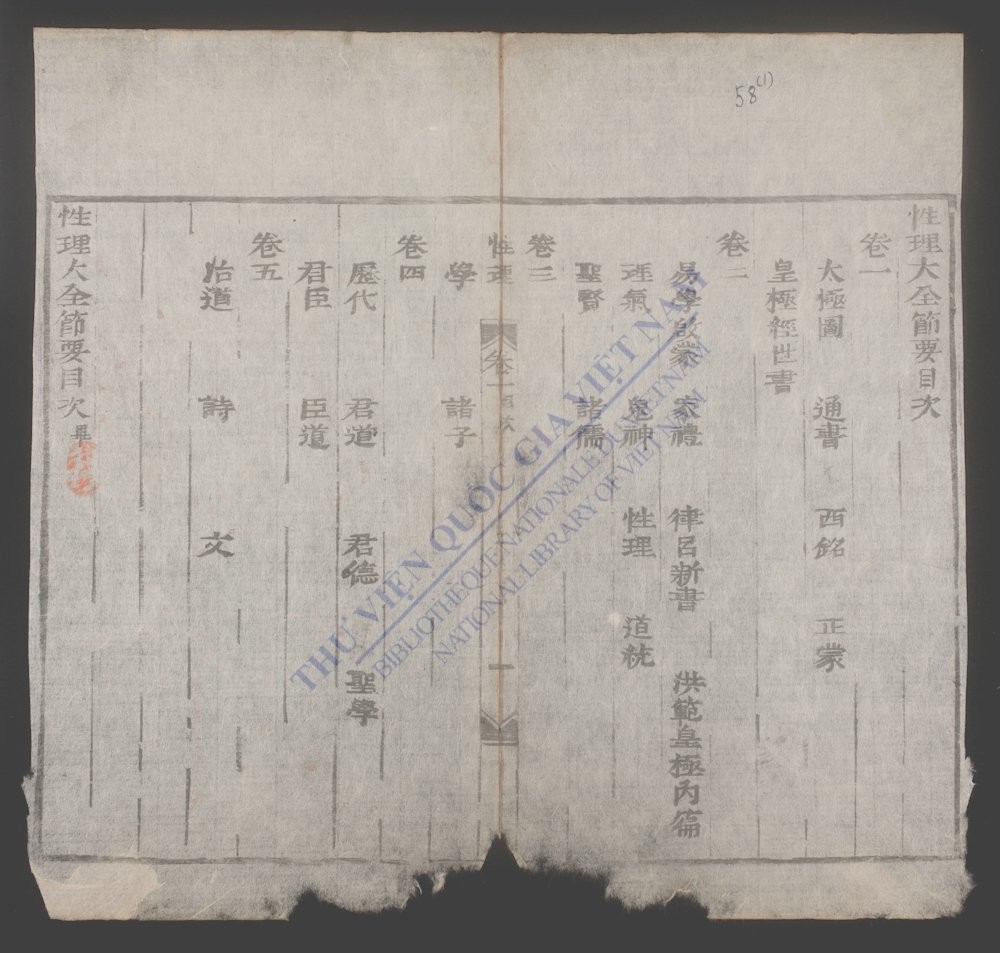 58(1)
性理大全節要目次
卷一
太極圖 通書 西銘 正蒙
皇極經世書
卷二
易學啟蒙 家禮 律呂新書 洪範皇極內篇
理氣 鬼神 性理 道統
聖賢 諸儒
卷三
性理 卷一 目次 一
學 諸子
卷四
歷代 君道 君德 聖學
君臣 臣道
卷五
治道 詩 文
性理大全節要目次畢
THƯ VIỆN QUỐC GIA VIỆT NAM
BIBLIOTHÈQUE NATIONALE DU VIETNAM
NATIONAL LIBRARY OF VIETNAM